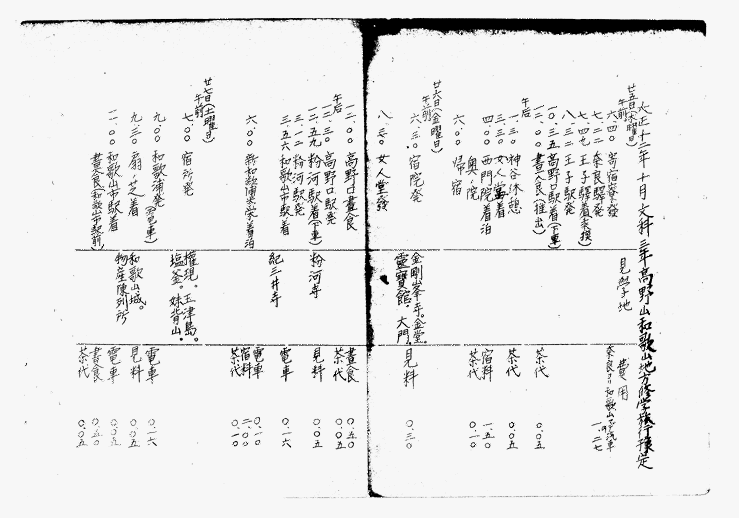 大正十二年十月文科三年高野山和歌山地方修学旅行予定
見学地
費用
廿五日(木曜日)
午前
六.四〇 寄宿寮発
七.二二 奈良駅発
七.四九 王子駅着(乗換)
八.三二 王子駅発
一〇.三五 高野口駅着(下車)
一二.〇〇 昼食(推出)
午后
一.三〇 神谷休憩
三.三〇 女人堂着
四.〇〇 西門院着泊
奥ノ院
六.〇〇 帰宿
奈良ヨリ和歌山マデ汽車
一.二七
茶代 〇.〇五
茶代 〇.〇五
宿料 一.五〇
茶代 〇.一〇
廿六日(金曜日)
午前
六.三〇 宿院発
八.三〇 女人堂発
金剛峯寺。金堂.
霊宝館。大門.
見料 〇.三〇
一二.〇〇 高野口昼食
午后
一二.三〇 高野口駅発
一二.五九 粉河駅着(下車)
三.一二 粉河駅発
三.五六 和歌山市駅着
六.〇〇 新和歌浦米栄着泊
粉河寺
紀三井寺
昼食 〇.五〇
茶代 〇.〇五
見料 〇.〇五
電車 〇.一六
電車 〇.一〇
宿料 二.〇〇
茶代 〇.一〇
廿七日(土曜日)
午前
七.〇〇 宿所発
九.〇〇 和歌浦発(電車)
九.三〇 扇ノ芝着
一一.〇〇 和歌山市駅着
昼食(和歌山市駅前)
権現。玉津島。
塩釜。妹背山.
和歌山城。
物産陳列所
電車 〇.一六
見料 〇.〇五
電車 〇.〇五
昼食 〇.五〇
茶代 〇.〇五